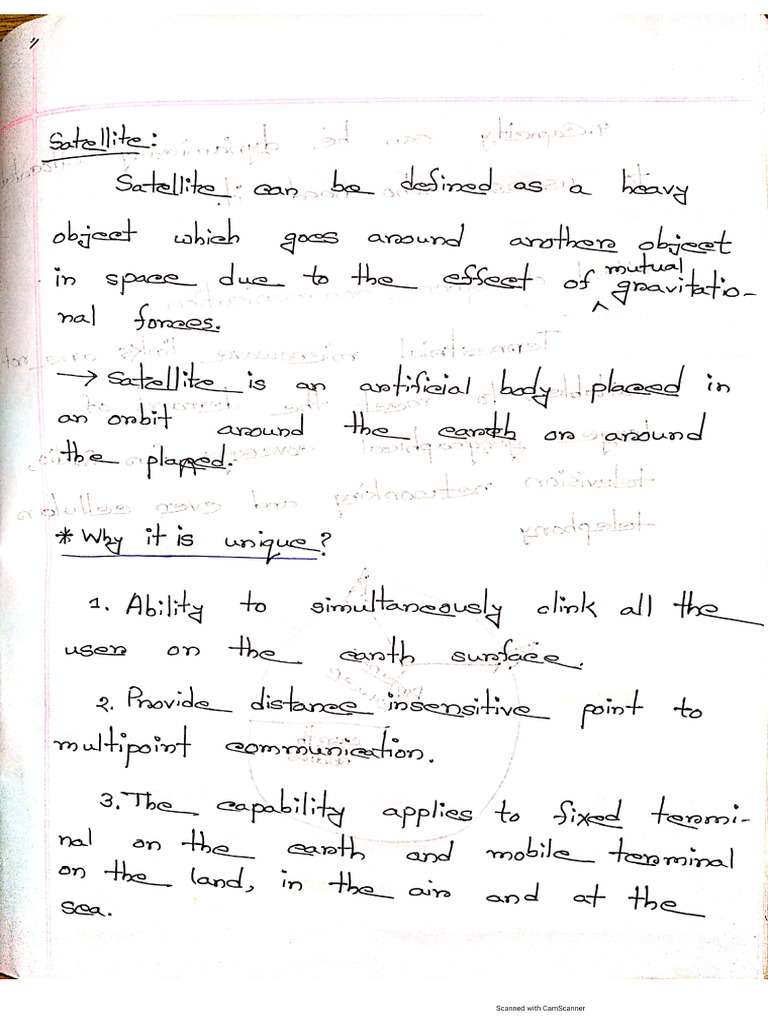 Satellite:
Satellite can be defined as a heavy
object which goes around another object
in space due to the effect of mutual gravitatio-
nal forces.
→ Satellite is an artificial body placed in
an orbit around the earth or around
the
* Why it is unique?
1. Ability to simultaneously clink all the
user on the earth surface.
2. Provide distance insensitive point to
multipoint communication.
3. The capability applies to fixed termi-
nal on the earth and mobile terminal
on the land, in the air and at the
sea.
Scanned with CamScanner